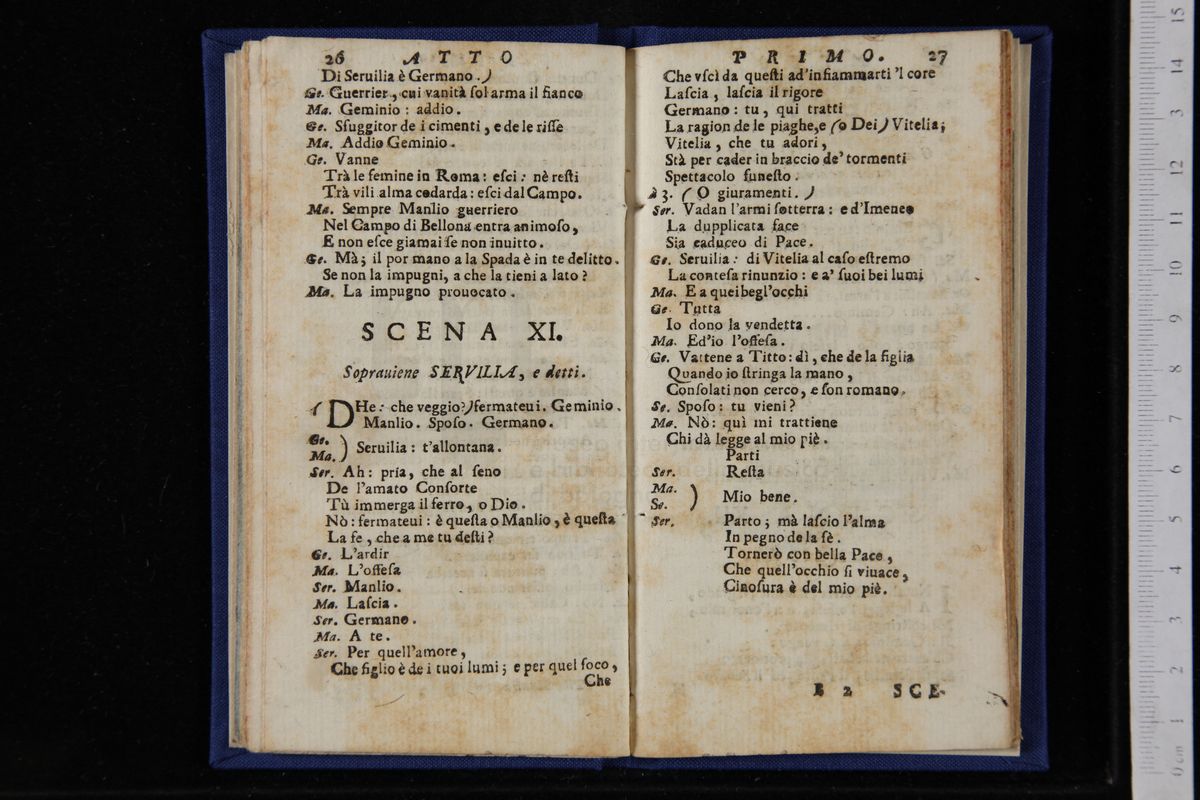 26 ATTO
Di Seruilia è Germano.)
Ge. Guerrier, cui vanità ſol arma il fianco
Ma. Geminio: addio.
Ge. Sfuggitor de i cimenti, e de le riſſe
Ma. Addio Geminio.
Ge. Vanne
Trà le femine in Roma: eſci: nè reſti
Trà vili alma codarda: eſci dal Campo.
Ma. Sempre Manlio guerriero
Nel Campo di Bellona entra animoſo,
E non eſce giamai ſe non inuitto.
Ge. Mà; il por mano a la Spada è in te delitto.
Se non la impugni, a che la tieni a lato?
Ma. La impugno prouocato.
SCENA XI.
Soprauiene SERVILIA, e detti.
( DHe: che veggio?) fermateui. Geminio.
Manlio. Spoſo. Germano.
Ge.
Ma. ) Seruilia: t'allontana.
Ser. Ah: pria, che al ſeno
De l'amato Conſorte
Tù immerga il ferro, o Dio.
Nò: fermateui: è queſta o Manlio, è queſta
La fe, che a me tu deſti?
Ge. L'ardir
Ma. L'offeſa
Ser. Manlio.
Ma. Laſcia.
Ser. Germano.
Ma. A te.
Ser. Per quell'amore,
Che figlio è de i tuoi lumi; e per quel foco,
Che
PRIMO. 27
Che vſcì da queſti ad'infiammarti 'l core
Laſcia, laſcia il rigore
Germano: tu, qui tratti
La ragion de le piaghe, e (o Dei) Vitelia;
Vitelia, che tu adori,
Stà per cader in braccio de' tormenti
Spettacolo funeſto.
à 3. (O giuramenti.)
Ser. Vadan l'armi ſotterra: e d'Imeneo
La dupplicata face
Sia caduceo di Pace.
Ge. Seruilia: di Vitelia al caſo eſtremo
La conteſa rinunzio: e a' ſuoi bei lumi
Ma. E a quei begl'occhi
Ge. Tutta
Io dono la vendetta.
Ma. Ed'io l'offeſa.
Ge. Vattene a Titto: dì, che de la figlia
Quando io ſtringa la mano,
Conſolati non cerco, e ſon romano.
Se. Spoſo: tu vieni?
Ma. Nò: quì mi trattiene
Chi dà legge al mio piè.
Parti
Ser. Reſta
Ma.
Se. ) Mio bene.
Ser. Parto; mà laſcio l'alma
In pegno de la fè.
Tornerò con bella Pace,
Che quell'occhio ſi viuace,
Cinoſura è del mio piè.
B 2 SCE-